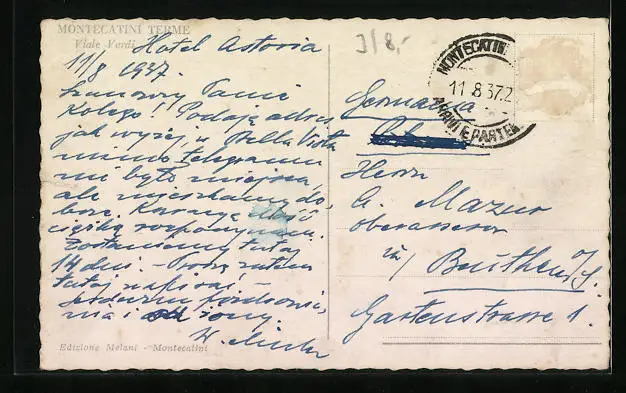 MONTECATINI TERME
Viale Verdi
Hotel Astoria
11/8 1937.
Szanowny Panie
Kolego! Podaję adres
jak wyżej, w Bella Vista
mimo telegramu
nie było miejsca,
ale mieszkamy do-
brze. Kurację dość
ciężką rozpoczynam.
Zostaniemy tutaj
14 dni. - Proszę zatem
tutaj napisać. -
Serdeczne pozdrowie-
nia i żony
Edizione Melani - Montecatini
3/8,-
MONTECATINI
11 8 37.2
ARRIVI E PARTEN
Germania
Herrn
G. Mazur
oberassessor
in/ Beuthen O/S.
Gartenstrasse 1.